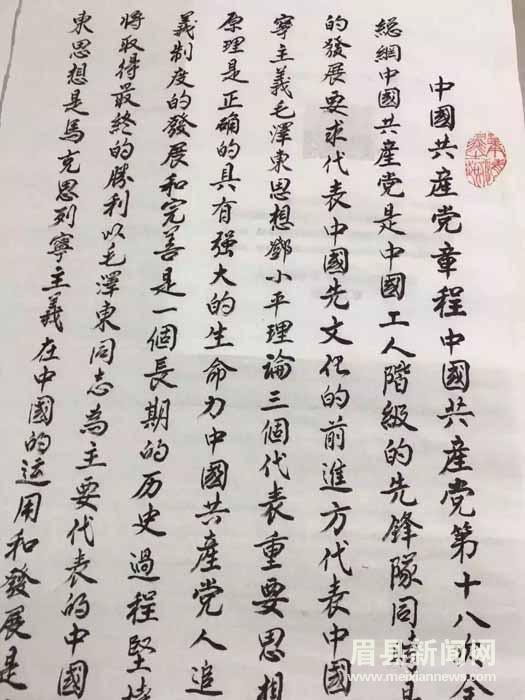 中國共產党章程中國共產党第十八次
総綱中國共產党是中國工人階級的先鋒隊同時是
的發展要求代表中國先文化的前進方代表中國
寧主義毛澤東思想鄧小平理論三個代表重要思想
原理是正确的具有强大的生命力中國共產党人追
義制度的發展和完善是一個長期的历史過程堅持
将取得最终的勝利以毛澤東同志為主要代表的中國
東思想是馬克思列寧主義在中國的运用和發展是
眉县新闻网
www.meixiannews.com